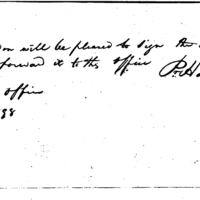 will be pleased to sign the
forward it to this office
P. H
office
98